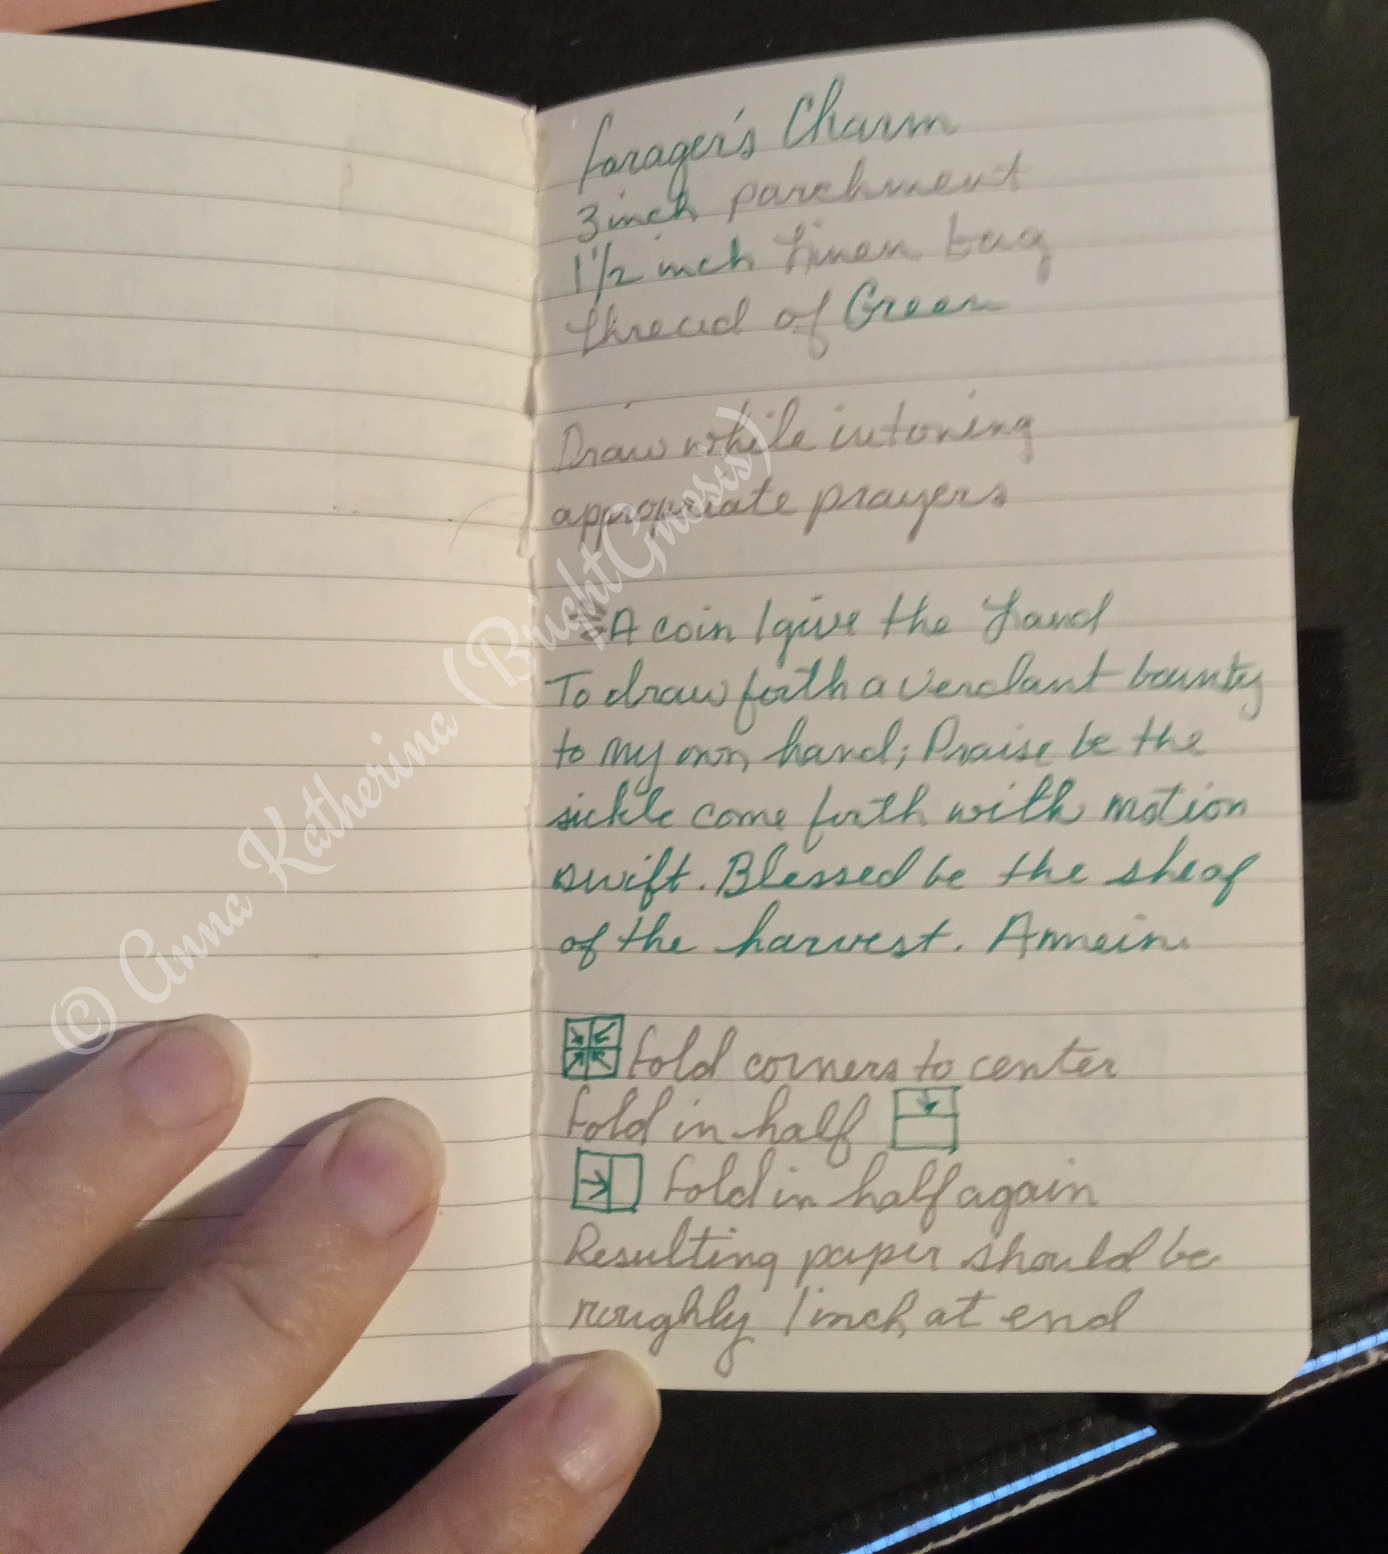 Forager's Charm
3 inch parchment
1 1/2 inch Linen bag
thread of Green
Draw while intoning
appropriate prayers
A coin I give the Land
To draw forth a verdant bounty
to my own hand; Praise be the
sickle come forth with motion
swift. Blessed be the sheaf
of the harvest. Ammein.
fold corners to center
fold in half
fold in half again
Resulting paper should be
roughly 1 inch at end
© Anna Katherina (BrightGnosis)